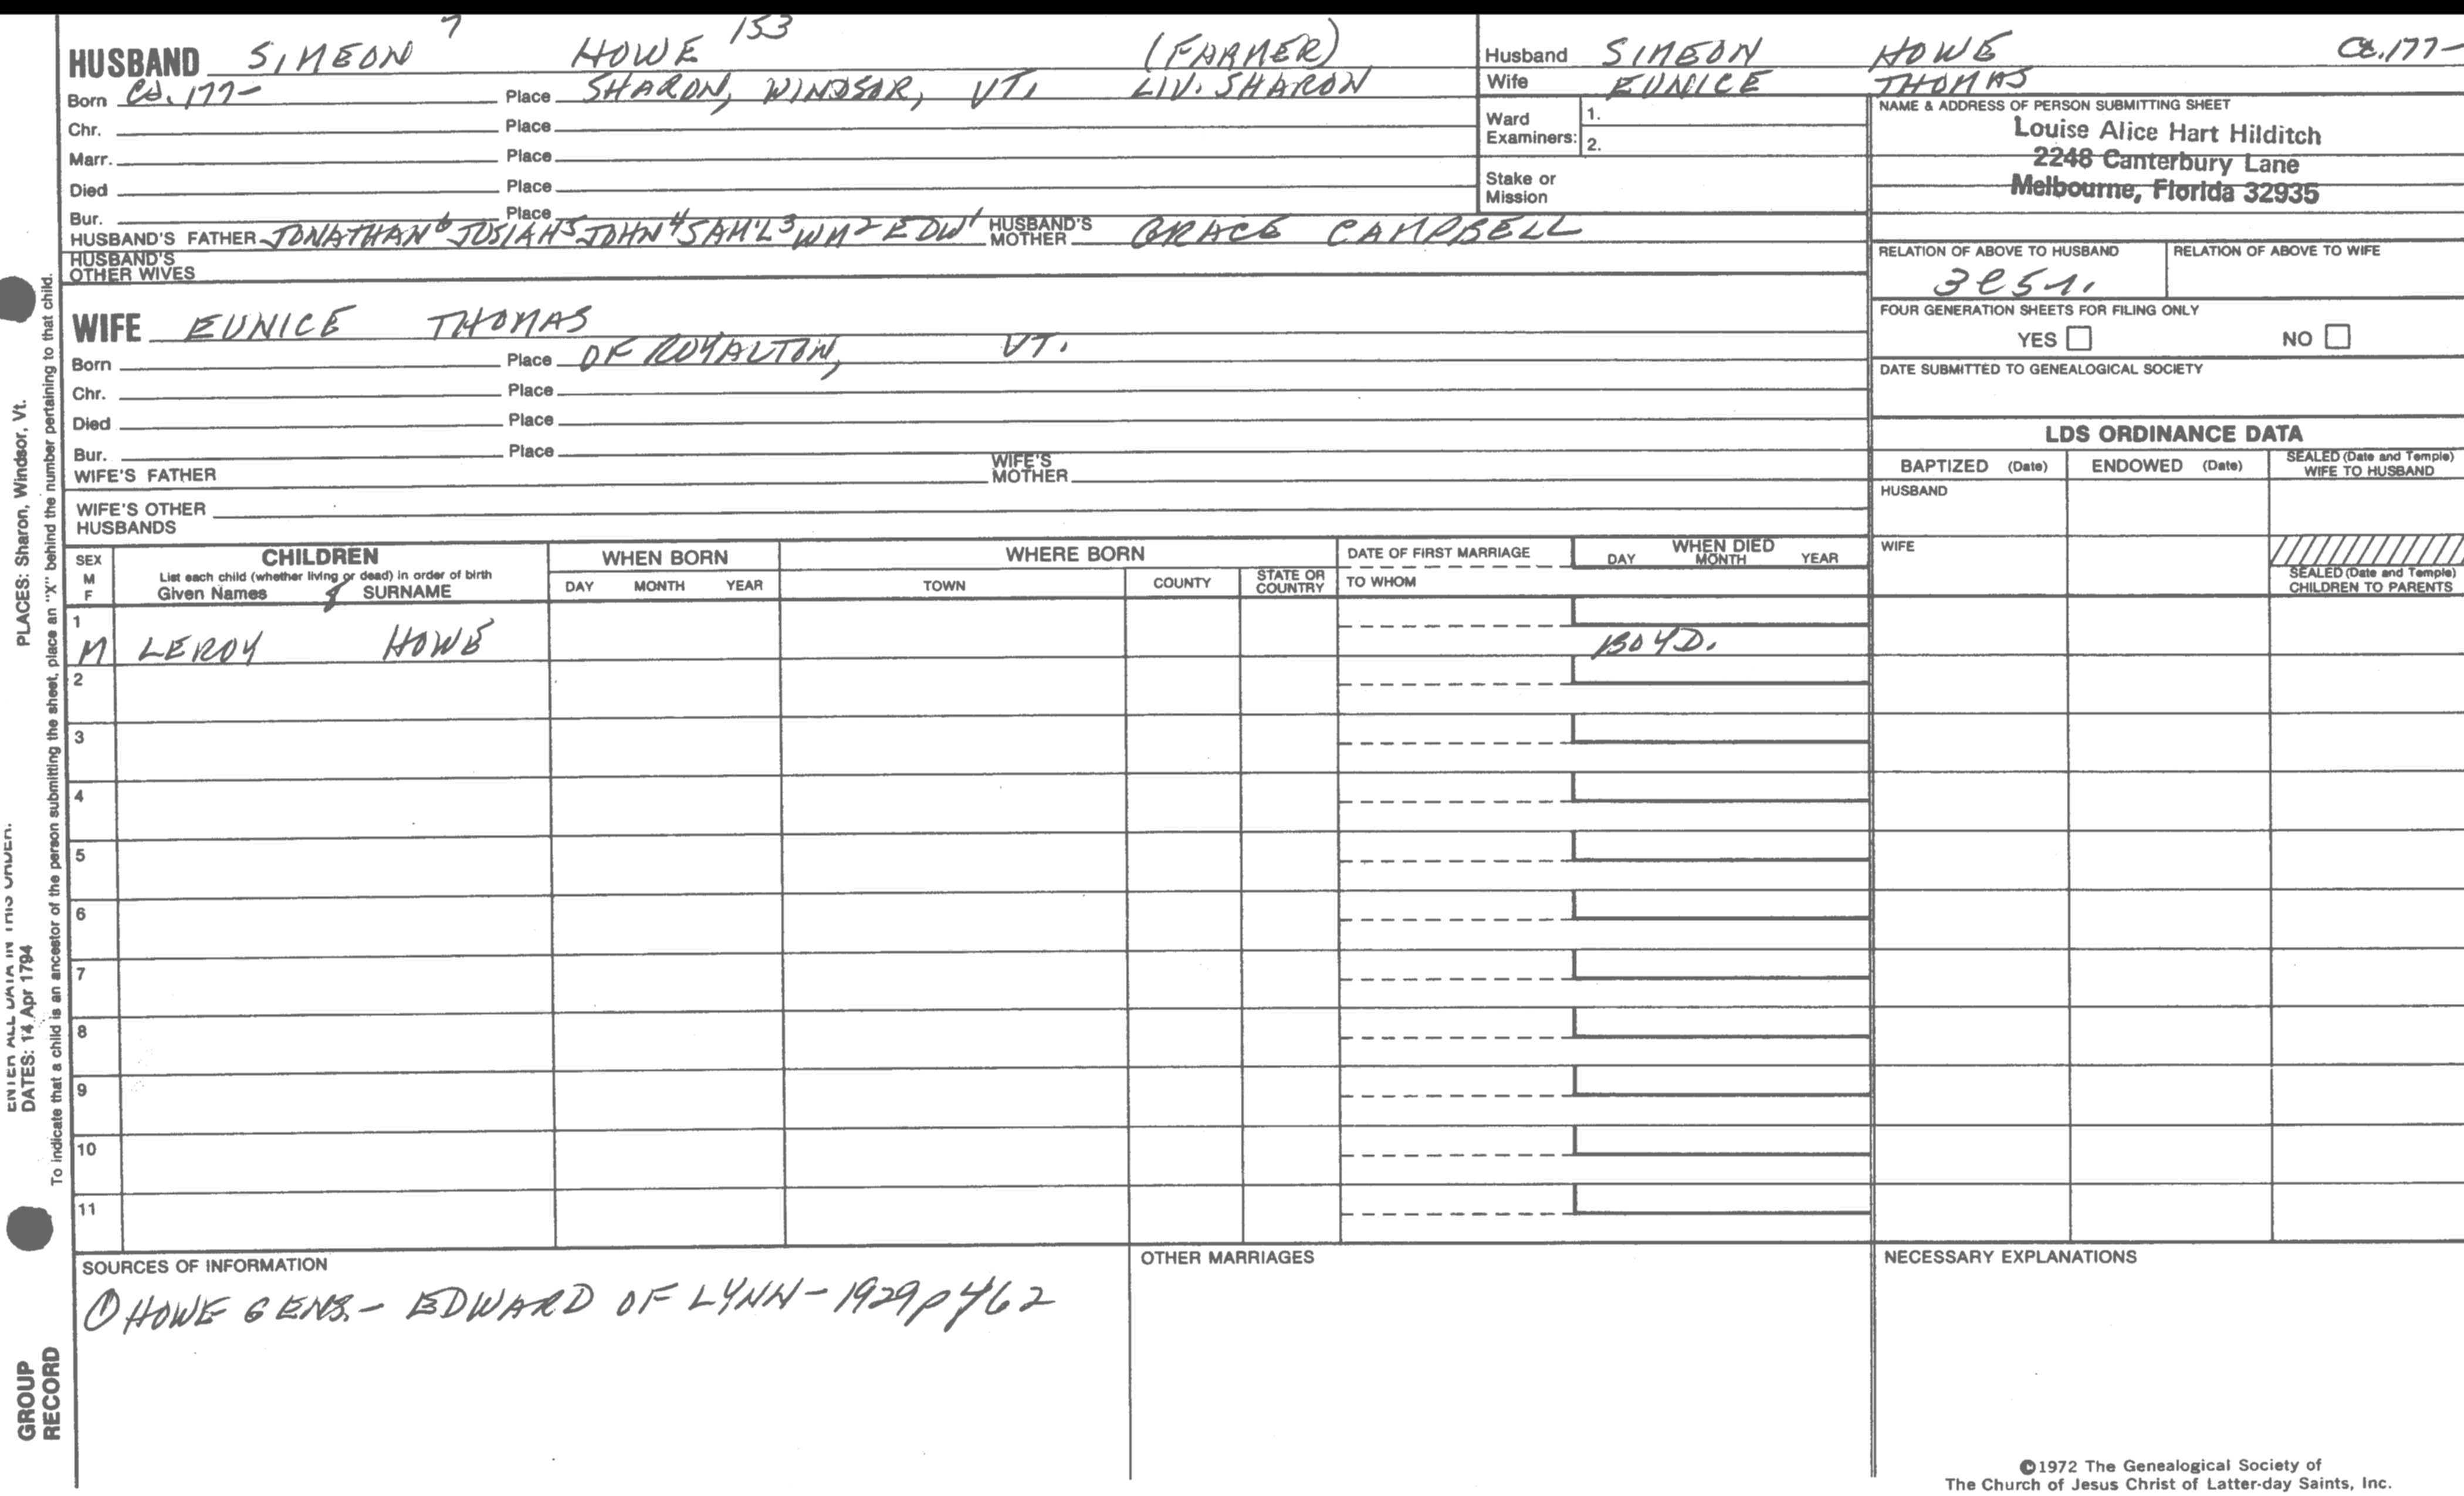 7 153
HUSBAND SIMEON HOWE (FARMER)
Born Ca. 177- Place SHARON, WINDSOR, VT. LIV. SHARON
Chr. Place
Marr. Place
Died Place
Bur. Place
HUSBAND'S FATHER JONATHAN6 JOSIAH5 JOHN4 SAM'L3 WM2 EDW1 HUSBAND'S MOTHER GRACE CAMPBELL
HUSBAND'S OTHER WIVES
WIFE EUNICE THOMAS
Born Place OF ROYALTON, VT.
Chr. Place
Died Place
Bur. Place
WIFE'S FATHER WIFE'S MOTHER
WIFE'S OTHER HUSBANDS
Husband SIMEON HOWE Ca. 177-
Wife EUNICE THOMAS
Ward Examiners: 1.
2.
Stake or Mission
NAME & ADDRESS OF PERSON SUBMITTING SHEET
Louise Alice Hart Hilditch
2248 Canterbury Lane
Melbourne, Florida 32935
RELATION OF ABOVE TO HUSBAND RELATION OF ABOVE TO WIFE
FOUR GENERATION SHEETS FOR FILING ONLY
YES NO
DATE SUBMITTED TO GENEALOGICAL SOCIETY
LDS ORDINANCE DATA
BAPTIZED (Date) ENDOWED (Date) SEALED (Date and Temple) WIFE TO HUSBAND
HUSBAND
WIFE
SEALED (Date and Temple) CHILDREN TO PARENTS
SEX M F
CHILDREN
List each child (whether living or dead) in order of birth
Given Names SURNAME
WHEN BORN
DAY MONTH YEAR
WHERE BORN
TOWN COUNTY STATE OR COUNTRY
DATE OF FIRST MARRIAGE
TO WHOM
WHEN DIED
DAY MONTH YEAR
8
1
M LEROY HOWE
2
3
4
5
6
7
8
9
10
11
SOURCES OF INFORMATION
① HOWE GENS. - EDWARD OF LYNN - 1929 p 462
OTHER MARRIAGES
NECESSARY EXPLANATIONS
©1972 The Genealogical Society of
The Church of Jesus Christ of Latter-day Saints, Inc.
To indicate that a child is an ancestor of the person submitting the sheet, place an "X" behind the number pertaining to that child.
PLACES: Sharon, Windsor, Vt.
ENTER ALL DATA IN THIS ORDER.
DATES: 14 Apr 1794
GROUP
RECORD